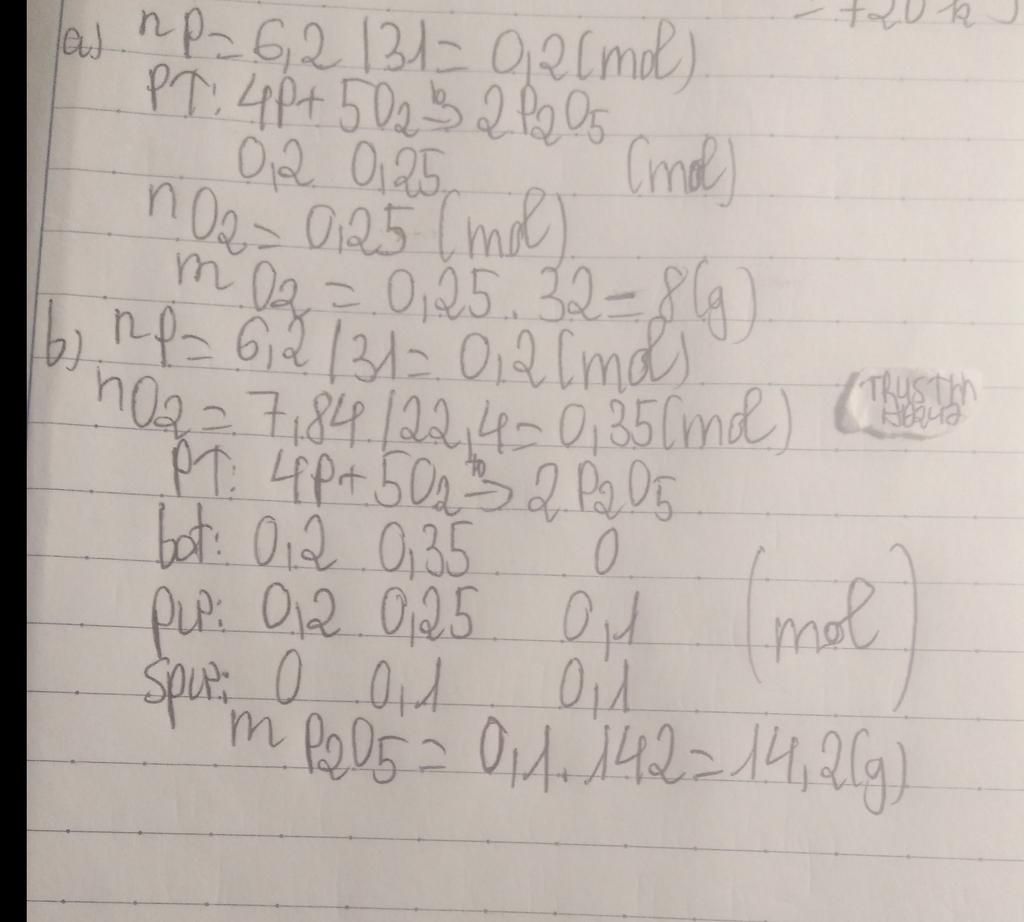 = 720 k
a) nP = 6,2 / 31 = 0,2 (mol)
PT: 4P + 5O2 t° → 2P2O5
0,2 0,25 (mol)
nO2 = 0,25 (mol)
mO2 = 0,25 . 32 = 8 (g)
b) nP = 6,2 / 31 = 0,2 (mol)
nO2 = 7,84 / 22,4 = 0,35 (mol)
PT: 4P + 5O2 t° → 2P2O5
bđ: 0,2 0,35 0
pư: 0,2 0,25 0,1 (mol)
spư: 0 0,1 0,1
mP2O5 = 0,1 . 142 = 14,2 (g)